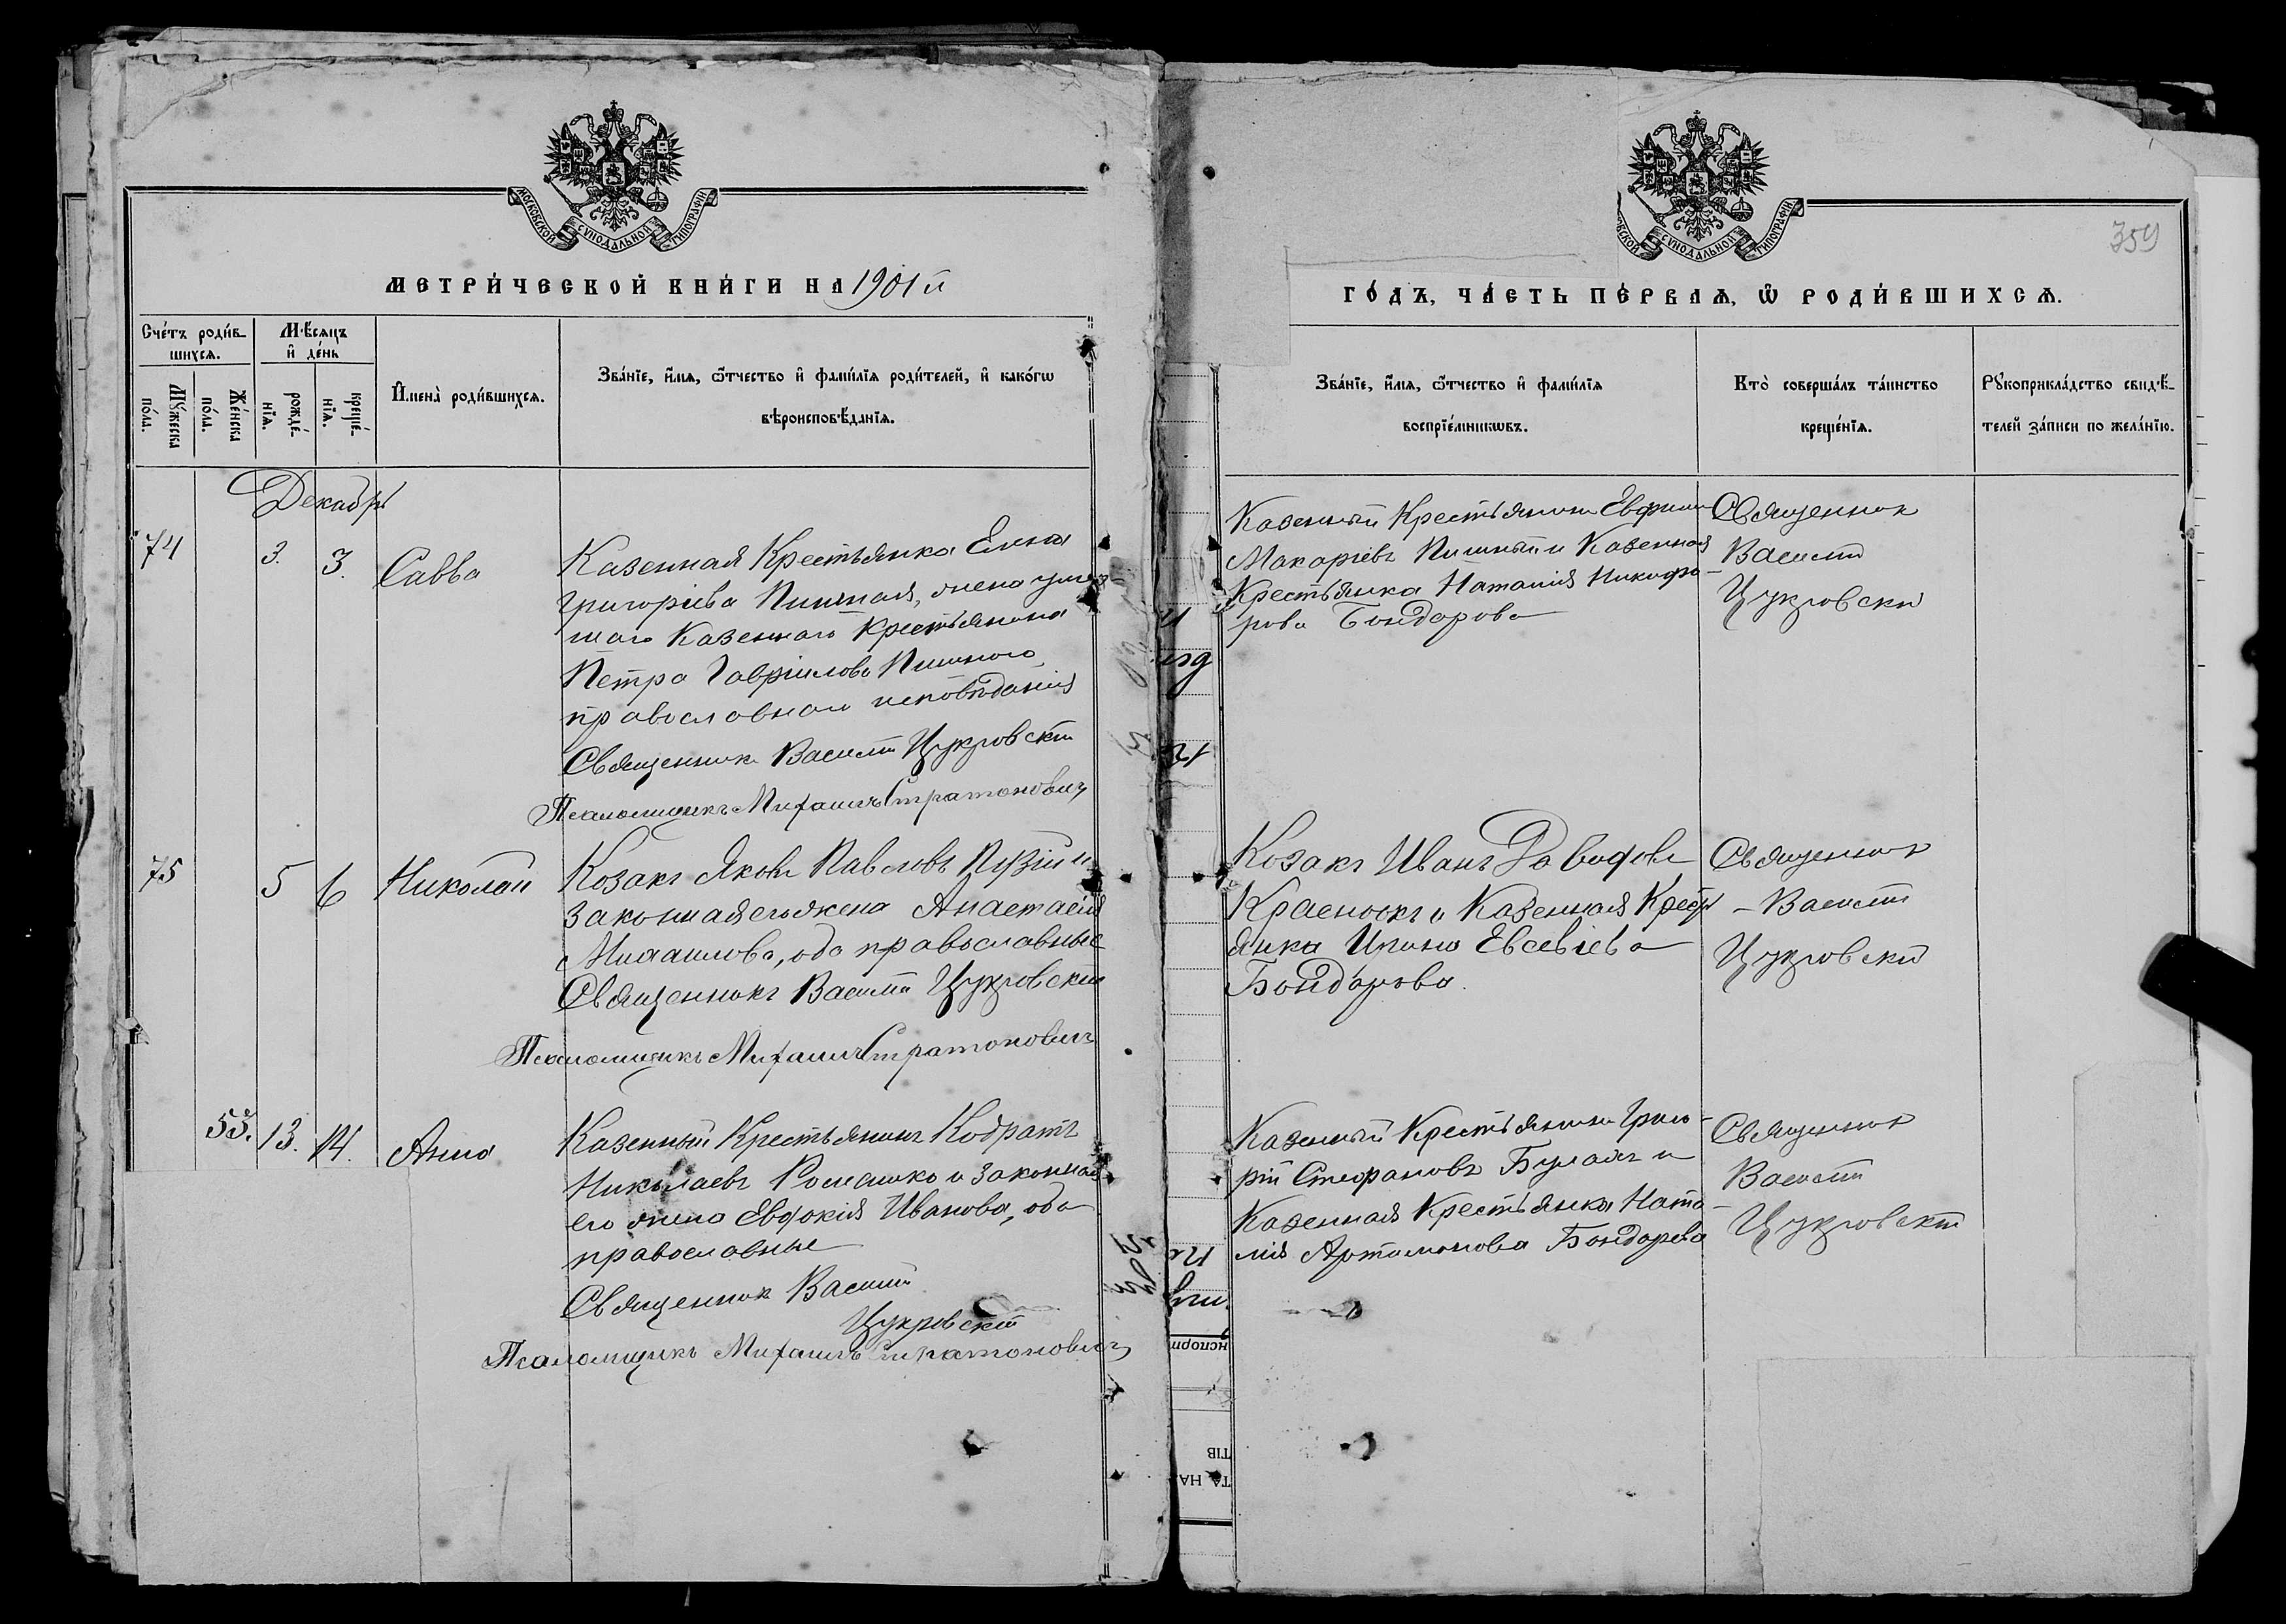 МОСКОВСКОЙ СѴНОДАЛЬНОЙ ТИПОГРАФІИ
МЕТРИ́ЧЕСКОЙ КНИ́ГИ НА 1901й
Сче́тъ роди́в-
шихсѧ.
Мѣ́сяцъ
и҆ де́нь
Мꙋ́жеска
по́ла.
Же́нска
по́ла.
рожде́-
нїѧ.
креще́-
нїѧ.
И҆мена̀ роди́вшихсѧ.
Зва́нїе, и҆́мѧ, ѻ҆́тчество и҆ фами́лїѧ роди́телей, и҆ како́гѡ
вѣроисповѣ́данїѧ.
Декабрь
74
3.
3.
Савва
Казенная Крестьянка Елена
Григорiева Пишная, жена умер-
шаго Казеннаго Крестьянина
Петра Гаврiилова Пишнаго
православнаго исповѣданiя
Священникъ Василiй Цукровскiй
Псаломщикъ Михаилъ Стратоновичъ
75
5
6
Николай
Козакъ Яковъ Павловъ Пузiй и
законная его жена Анастасiя
Михаилова, оба православные
Священникъ Василiй Цукровскiй
Псаломщикъ Михаилъ Стратоновичъ
53.
13.
14.
Анна
Казенный Крестьянинъ Кодратъ
Николаевъ Ромашко и законная
его жена Евдокiя Иванова, оба
православные
Священникъ Василiй
Цукровскiй
Псаломщикъ Михаилъ Стратоновичъ
359
СѴНОДАЛЬНОЙ ТИПОГРАФІИ
ГО́ДЪ, ЧА́СТЬ ПЕ́РВАѦ, Ѡ҆ РОДИ́ВШИХСѦ.
Зва́нїе, и҆́мѧ, ѻ҆́тчество и҆ фами́лїѧ
воспрїе́мникѡвъ.
Кто̀ соверша́лъ та́инство
креще́нїѧ.
Рꙋкоприкла́дство свидѣ́-
телей за́писи по жела́нїю.
Казенный Крестьянинъ Евфимъ
Макарiевъ Пишный и Казенная
Крестьянка Наталiя Никифо-
рова Бондарова
Священникъ
Василiй
Цукровскiй
Козакъ Иванъ Давидовъ
Красноокъ и Казенная Кресть
янка Ирина Евсевiева
Бондарова
Священникъ
Василiй
Цукровскiй
Казенный Крестьянинъ Григо-
рiй Стефановъ Булахъ и
Казенная Крестьянка Ната-
лiя Артамонова Бондарева
Священникъ
Василiй
Цукровскiй